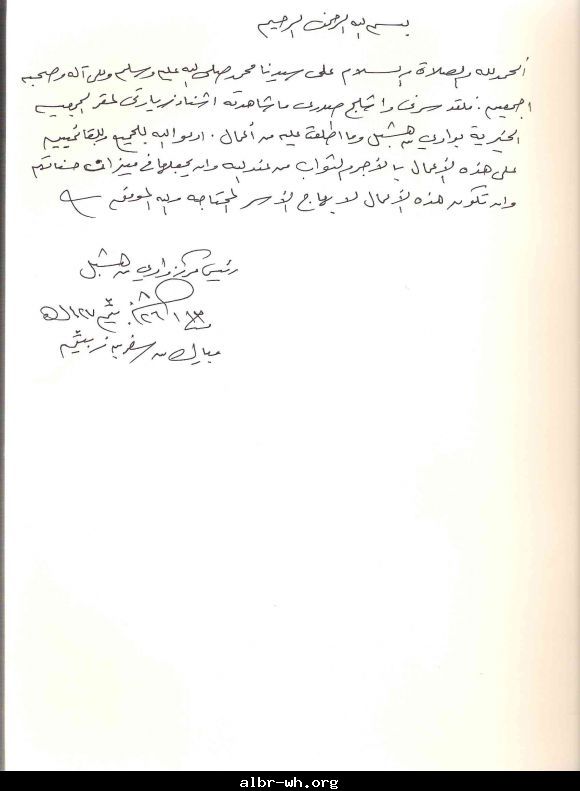 بسم الله الرحمن الرحيم
الحمد لله والصلاة والسلام على سيدنا محمد صلى الله عليه وسلم وعلى آله وصحبه
اجمعين . فلقد سرني واثلج صدري ما شاهدته اثناء زيارتي لمقر الجمعية
الخيرية بوادي بن هشبل وما اطلعت عليه من أعمال . ادعو الله للجميع وللقائمين
على هذه الأعمال بالأجر والثواب من عند الله وان يجعلها في ميزان حسناتهم
وان تكون هذه الأعمال لإبهاج الأسر المحتاجة والله الموفق
رئيس مركز وادي بن هشبل
مبارك بن
albr-wh.org